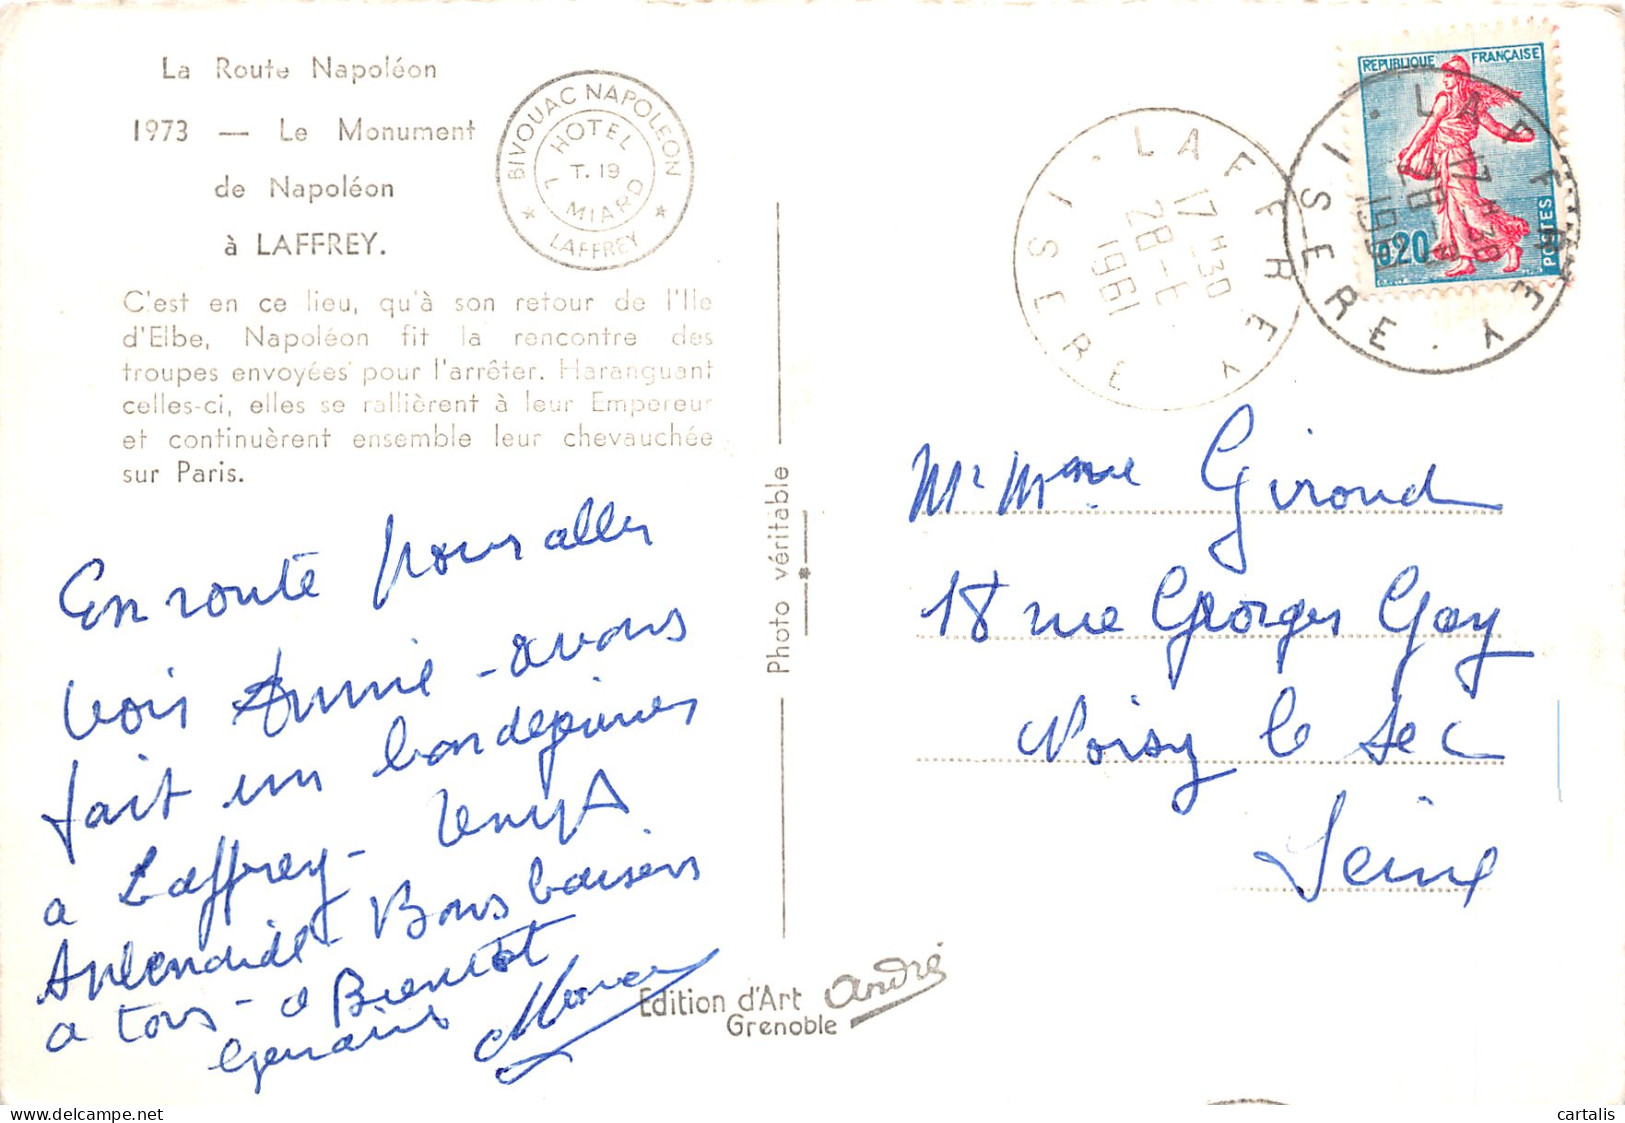 La Route Napoléon
1973 — Le Monument
de Napoléon
à LAFFREY.
C'est en ce lieu, qu'à son retour de l'Ile
d'Elbe, Napoléon fit la rencontre des
troupes envoyées pour l'arrêter. Haranguant
celles-ci, elles se rallièrent à leur Empereur
et continuèrent ensemble leur chevauchée
sur Paris.
BIVOUAC NAPOLEON
HOTEL
T. 19
L MIARD
★ LAFFREY ★
En route pour aller
voir Annie - avons
fait un bon déjeuner
a Laffrey - temps
splendide - Bons baisers
a tous - a Bientot
Photo véritable
Edition d'Art André
Grenoble
LAFFREY
17 H 30
28 - E
1961
ISERE
REPUBLIQUE FRANÇAISE
0,20
POSTES
LAFFREY
17 H 30
28
ISERE
Mr Mme Giroud
18 rue Georges Gay
Noisy le Sec
Seine
cartalis